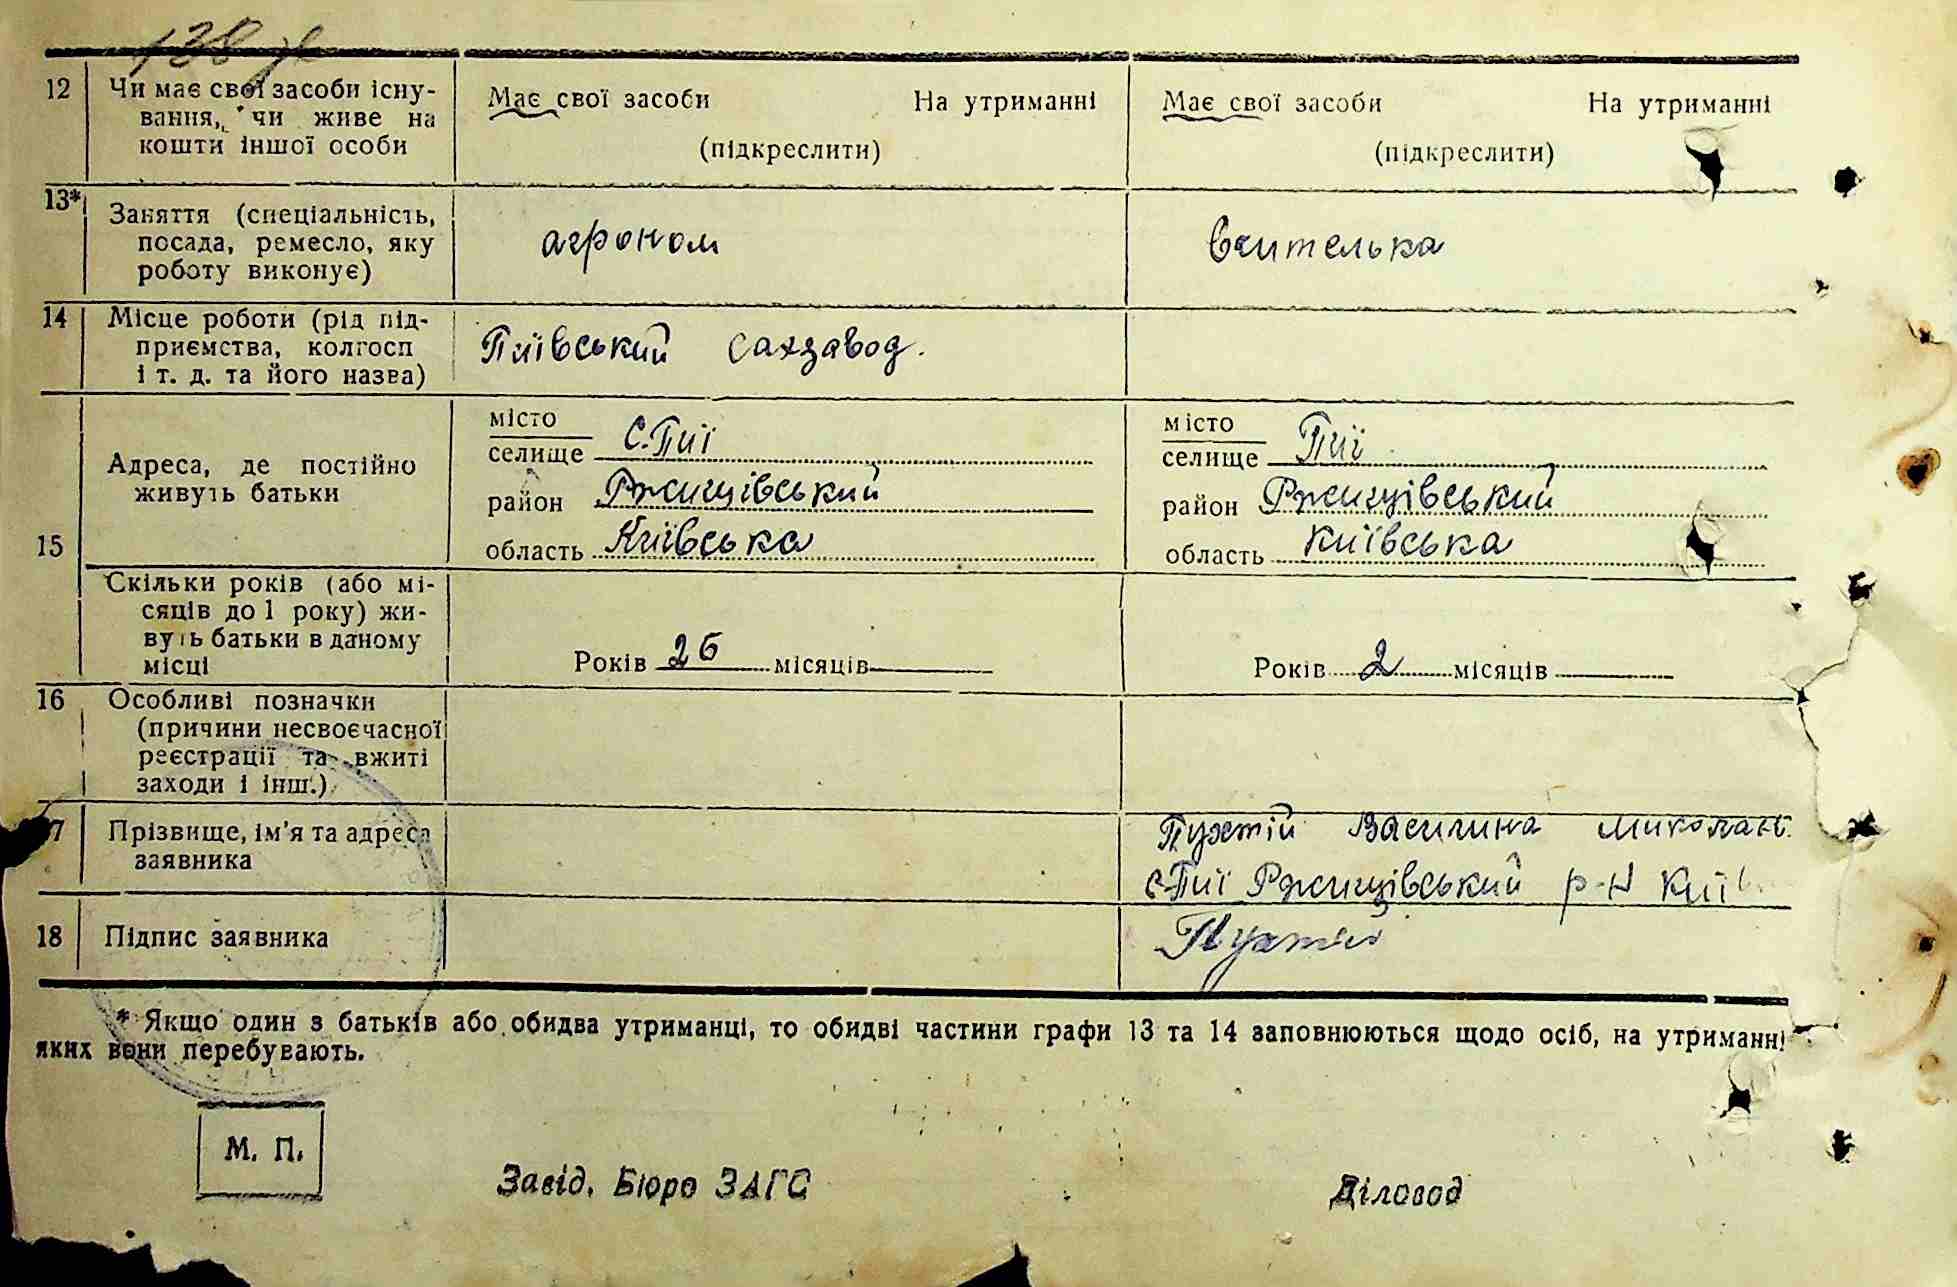 138
12 Чи має свої засоби існу-
вання, чи живе на
кошти іншої особи
Має свої засоби На утриманні
(підкреслити)
Має свої засоби На утриманні
(підкреслити)
13* Заняття (спеціальність,
посада, ремесло, яку
роботу виконує)
агроном
вчителька
14 Місце роботи (рід під-
приємства, колгосп
і т. д. та його назва)
Пиївський сахзавод.
15 Адреса, де постійно
живуть батьки
місто
селище с. Пиї
район Ржищівський
область Київська
місто
селище Пиї
район Ржищівський
область Київська
Скільки років (або мі-
сяців до 1 року) жи-
вуть батьки в даному
місці
Років 26 місяців
Років 2 місяців
16 Особливі позначки
(причини несвоєчасної
реєстрації та вжиті
заходи і інш.)
17 Прізвище, ім'я та адреса
заявника
Пухтій Василина Миколаїв.
с. Пиї Ржищівський р-н Київ
18 Підпис заявника
Пухтій
* Якщо один з батьків або обидва утриманці, то обидві частини графи 13 та 14 заповнюються щодо осіб, на утриманні
яких вони перебувають.
М. П.
Завід. Бюро ЗАГС
Діловод